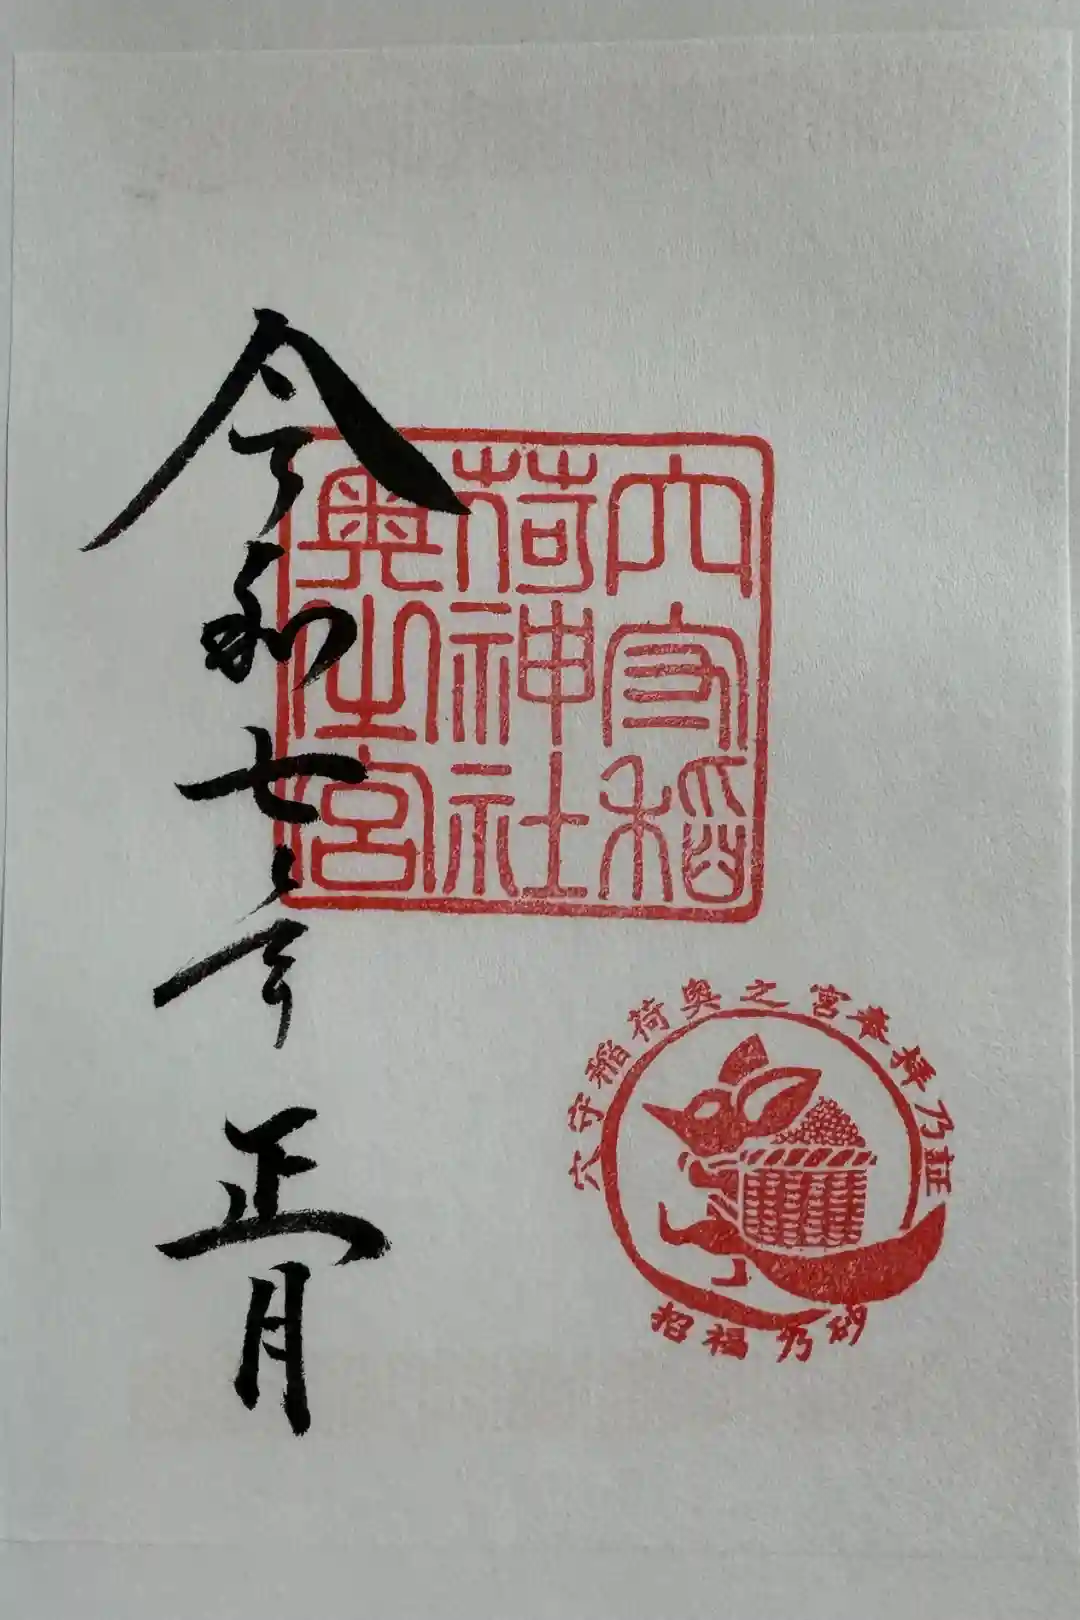 穴守稲
荷神社
奥之宮
令和七年 正月
穴守稲荷奥之宮参拝乃証
招福乃砂